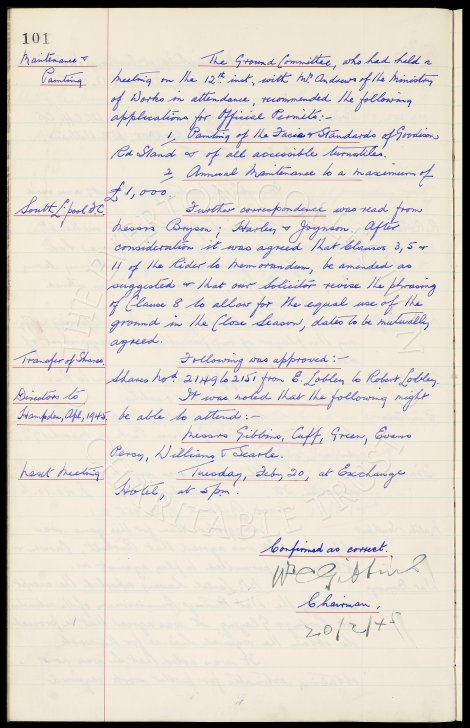 101
Maintenance &
Painting
The Ground Committee, who had held a
meeting on the 12th inst, with Mr Andrews of the Ministry
of Works in attendance, recommended the following
applications for Official Permits:-
1, Painting of the Facias & Standards of Goodison
Rd Stand & of all accessible turnstiles.
2, Annual Maintenance to a maximum of
£1,000.
South L'pool F.C.
Further correspondence was read from
Messrs Bryson; Harley & Joynson. After
consideration it was agreed that Clauses 3, 5 &
11 of the Rider to Memorandum, be amended as
suggested & that our Solicitor revise the phrasing
of Clause 8 to allow for the equal use of the
ground in the Close Season, dates to be mutually
agreed.
Transfer of Shares.
Following was approved:-
Shares Nos. 2149 to 2151 from E. Lobley to Robert Lobley.
Directors to
Hampden, Apl, 1945.
It was noted that the following might
be able to attend:-
Messrs Gibbins, Cuff, Green, Evans
Percy, Williams & Searle.
Next Meeting
Tuesday, Feby 20, at Exchange
Hotel, at 5pm.
Confirmed as correct.
W C Gibbins
Chairman.
20/2/45